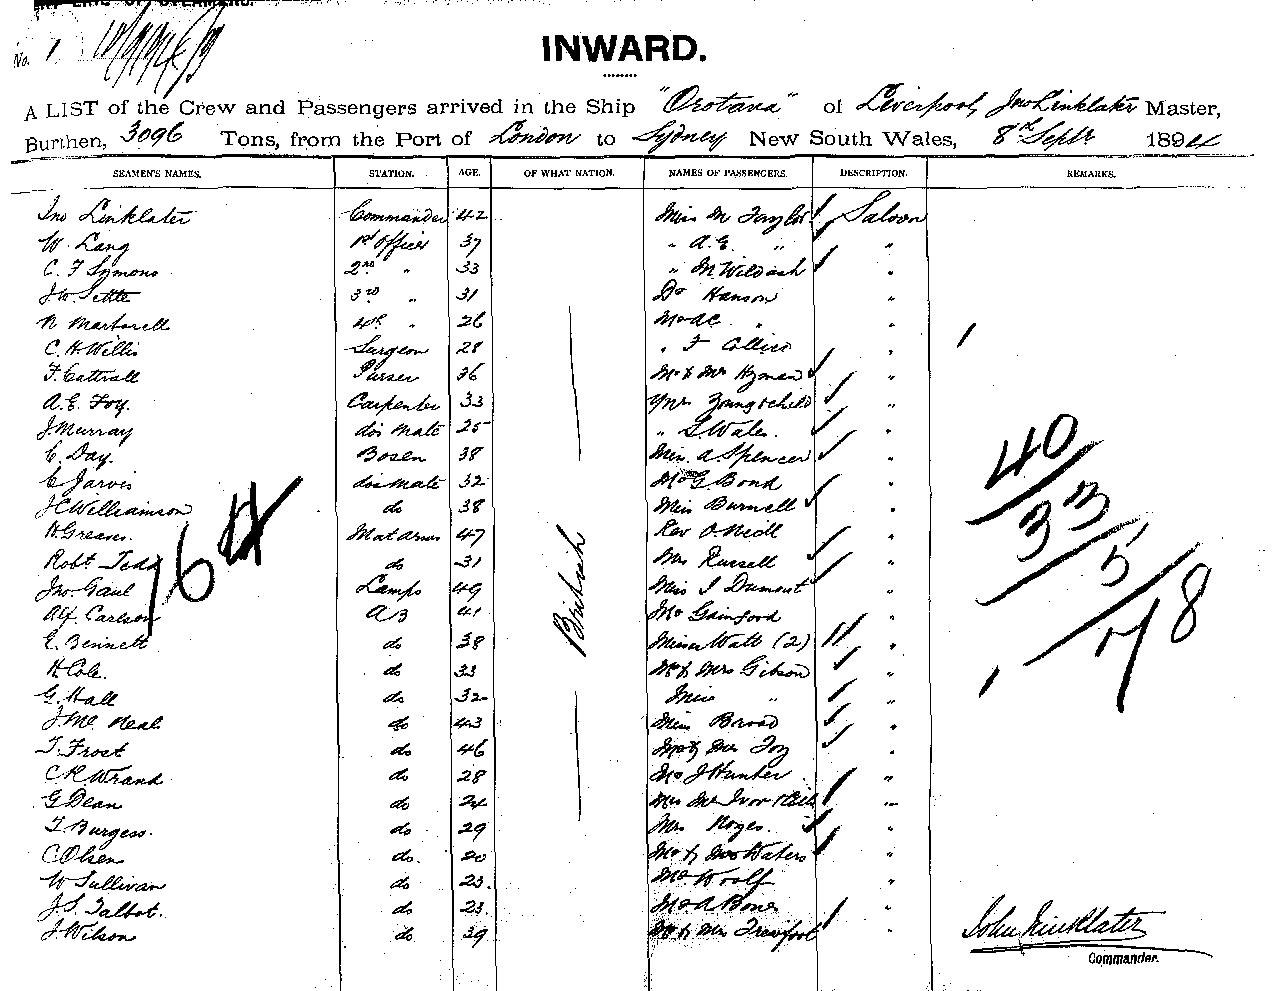 No. 1
INWARD.
A LIST of the Crew and Passengers arrived in the Ship "Orotava" of Liverpool, Jno Linklater Master,
Burthen, 3096 Tons, from the Port of London to Sydney New South Wales, 8th Septr 1894
SEAMEN'S NAMES. STATION. AGE. OF WHAT NATION. NAMES OF PASSENGERS. DESCRIPTION. REMARKS.
Jno Linklater Commander 42 Miss M Taylor Saloon
W. Lang 1st Officer 37 " A.E. " "
C. F Symons 2nd " 33 " M Wildash "
J.W. Settle 3rd " 31 Dr Hanson "
R Martorell 4th " 26 "
C. H. Willis Surgeon 28 " F "
F. Cattrall Purser 36 Mr & Mrs Hyman "
A. E. Foy. Carpenter 33 Mrs Young & child "
J. Murray dos Mate 25 " Wales. "
C. Day. Bosen 38 A Spencer "
C Jarvis dos Mate 32 G Bond "
J C Williamson do 38 Miss Burnell "
H. Greaves. Mat arms 47 Rev O. Neill "
Robt Tedd do 31 Mrs Russell "
Jno Gaul Lamps 49 Miss I Dumont "
Alf. Carlson AB 41 Mr Gainford "
E. Bennett do 38 Misses Watt (2) "
H. Cole. do 33 Mr & Mrs Gibson "
G. Hall do 32 Miss " "
J. Mc Neal do 43 Miss Broad "
T. Frost do 46 Mr & Mrs Foy "
C R Wrand do 28 Mr J Hunter "
G Dean do 24 Mrs Mc Ivor "
T Burgess. do 29 Mrs Noyes. "
C Olsen do. 20 Mr & Mrs Waters "
W Sullivan do 23. Mr Woolf "
J. S. Talbot. do 23. Mr A Bone "
J. Wilson do 39 Mr & Mrs "
British
164
40
33
5
78
John Linklater
Commander.